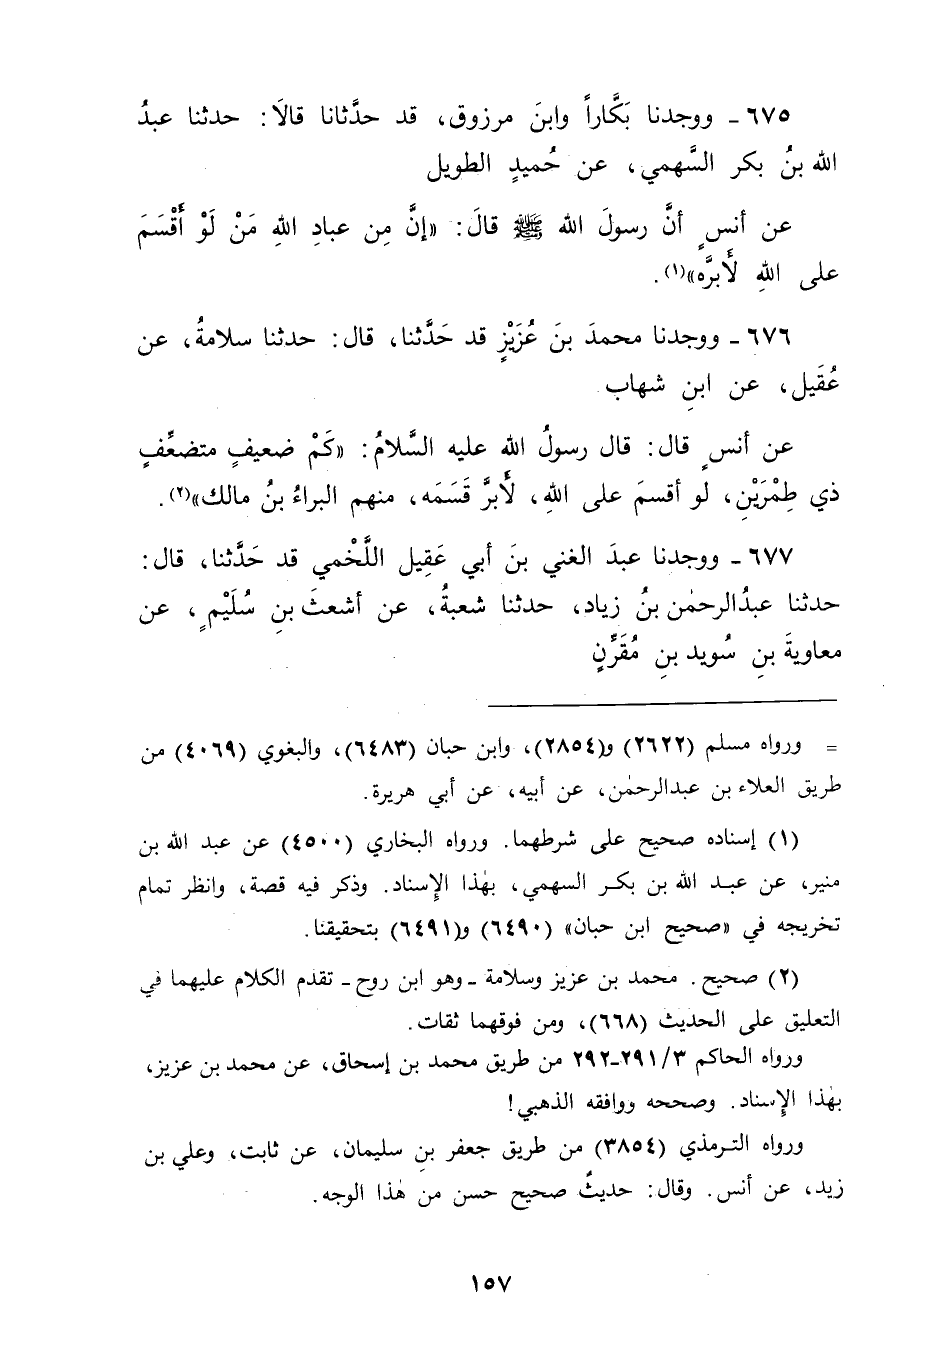 ٦٧٥ ـ ووجدنا بَكَّاراً وابنَ مرزوق، قد حدَّثانا قالَا: حدثنا عبدُ
الله بنُ بكر السَّهمي، عن حُميدٍ الطويل
عن أنسٍ أنَّ رسولَ الله ﷺ قالَ: «إنَّ مِن عبادِ اللهِ مَنْ لَوْ أَقْسَمَ
على اللهِ لَأَبرَّه»(١).
٦٧٦ ـ ووجدنا محمدَ بنَ عُزَيْزٍ قد حَدَّثنا، قال: حدثنا سلامةُ، عن
عُقَيل، عن ابنِ شهاب
عن أنسٍ قال: قال رسولُ الله عليه السَّلامُ: «كَمْ ضعيفٍ متضعَّفٍ
ذي طِمْرَيْنِ، لو أقسمَ على اللهِ، لَأَبرَّ قَسَمَه، منهم البراءُ بنُ مالك»(٢).
٦٧٧ ـ ووجدنا عبدَ الغني بنَ أبي عَقِيل اللَّخْمي قد حَدَّثنا، قال:
حدثنا عبدُالرحمٰن بنُ زياد، حدثنا شعبةُ، عن أشعثَ بنِ سُلَيْمٍ، عن
معاويةَ بنِ سُويد بنِ مُقَرِّنٍ
= ورواه مسلم (٢٦٢٢) و(٢٨٥٤)، وابن حبان (٦٤٨٣)، والبغوي (٤٠٦٩) من
طريق العلاء بن عبدالرحمٰن، عن أبيه، عن أبي هريرة.
(١) إسناده صحيح على شرطهما. ورواه البخاري (٤٥٠٠) عن عبد الله بن
منير، عن عبد الله بن بكر السهمي، بهٰذا الإسناد. وذكر فيه قصة، وانظر تمام
تخريجه في «صحيح ابن حبان» (٦٤٩٠) و(٦٤٩١) بتحقيقنا.
(٢) صحيح. محمد بن عزيز وسلامة ـ وهو ابن روح ـ تقدم الكلام عليهما في
التعليق على الحديث (٦٦٨)، ومن فوقهما ثقات.
ورواه الحاكم ٢٩١/٣-٢٩٢ من طريق محمد بن إسحاق، عن محمد بن عزيز،
بهٰذا الإسناد. وصححه ووافقه الذهبي!
ورواه الترمذي (٣٨٥٤) من طريق جعفر بن سليمان، عن ثابت، وعلي بن
زيد، عن أنس. وقال: حديثٌ صحيح حسن من هٰذا الوجه.
١٥٧